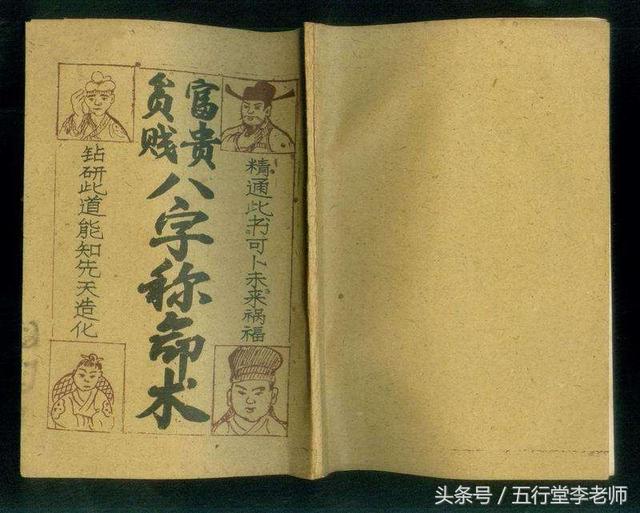 富贵
贫贱
八字称命术
精通此书可卜未来祸福
钻研此道能知先天造化
头条号／五行堂李老师